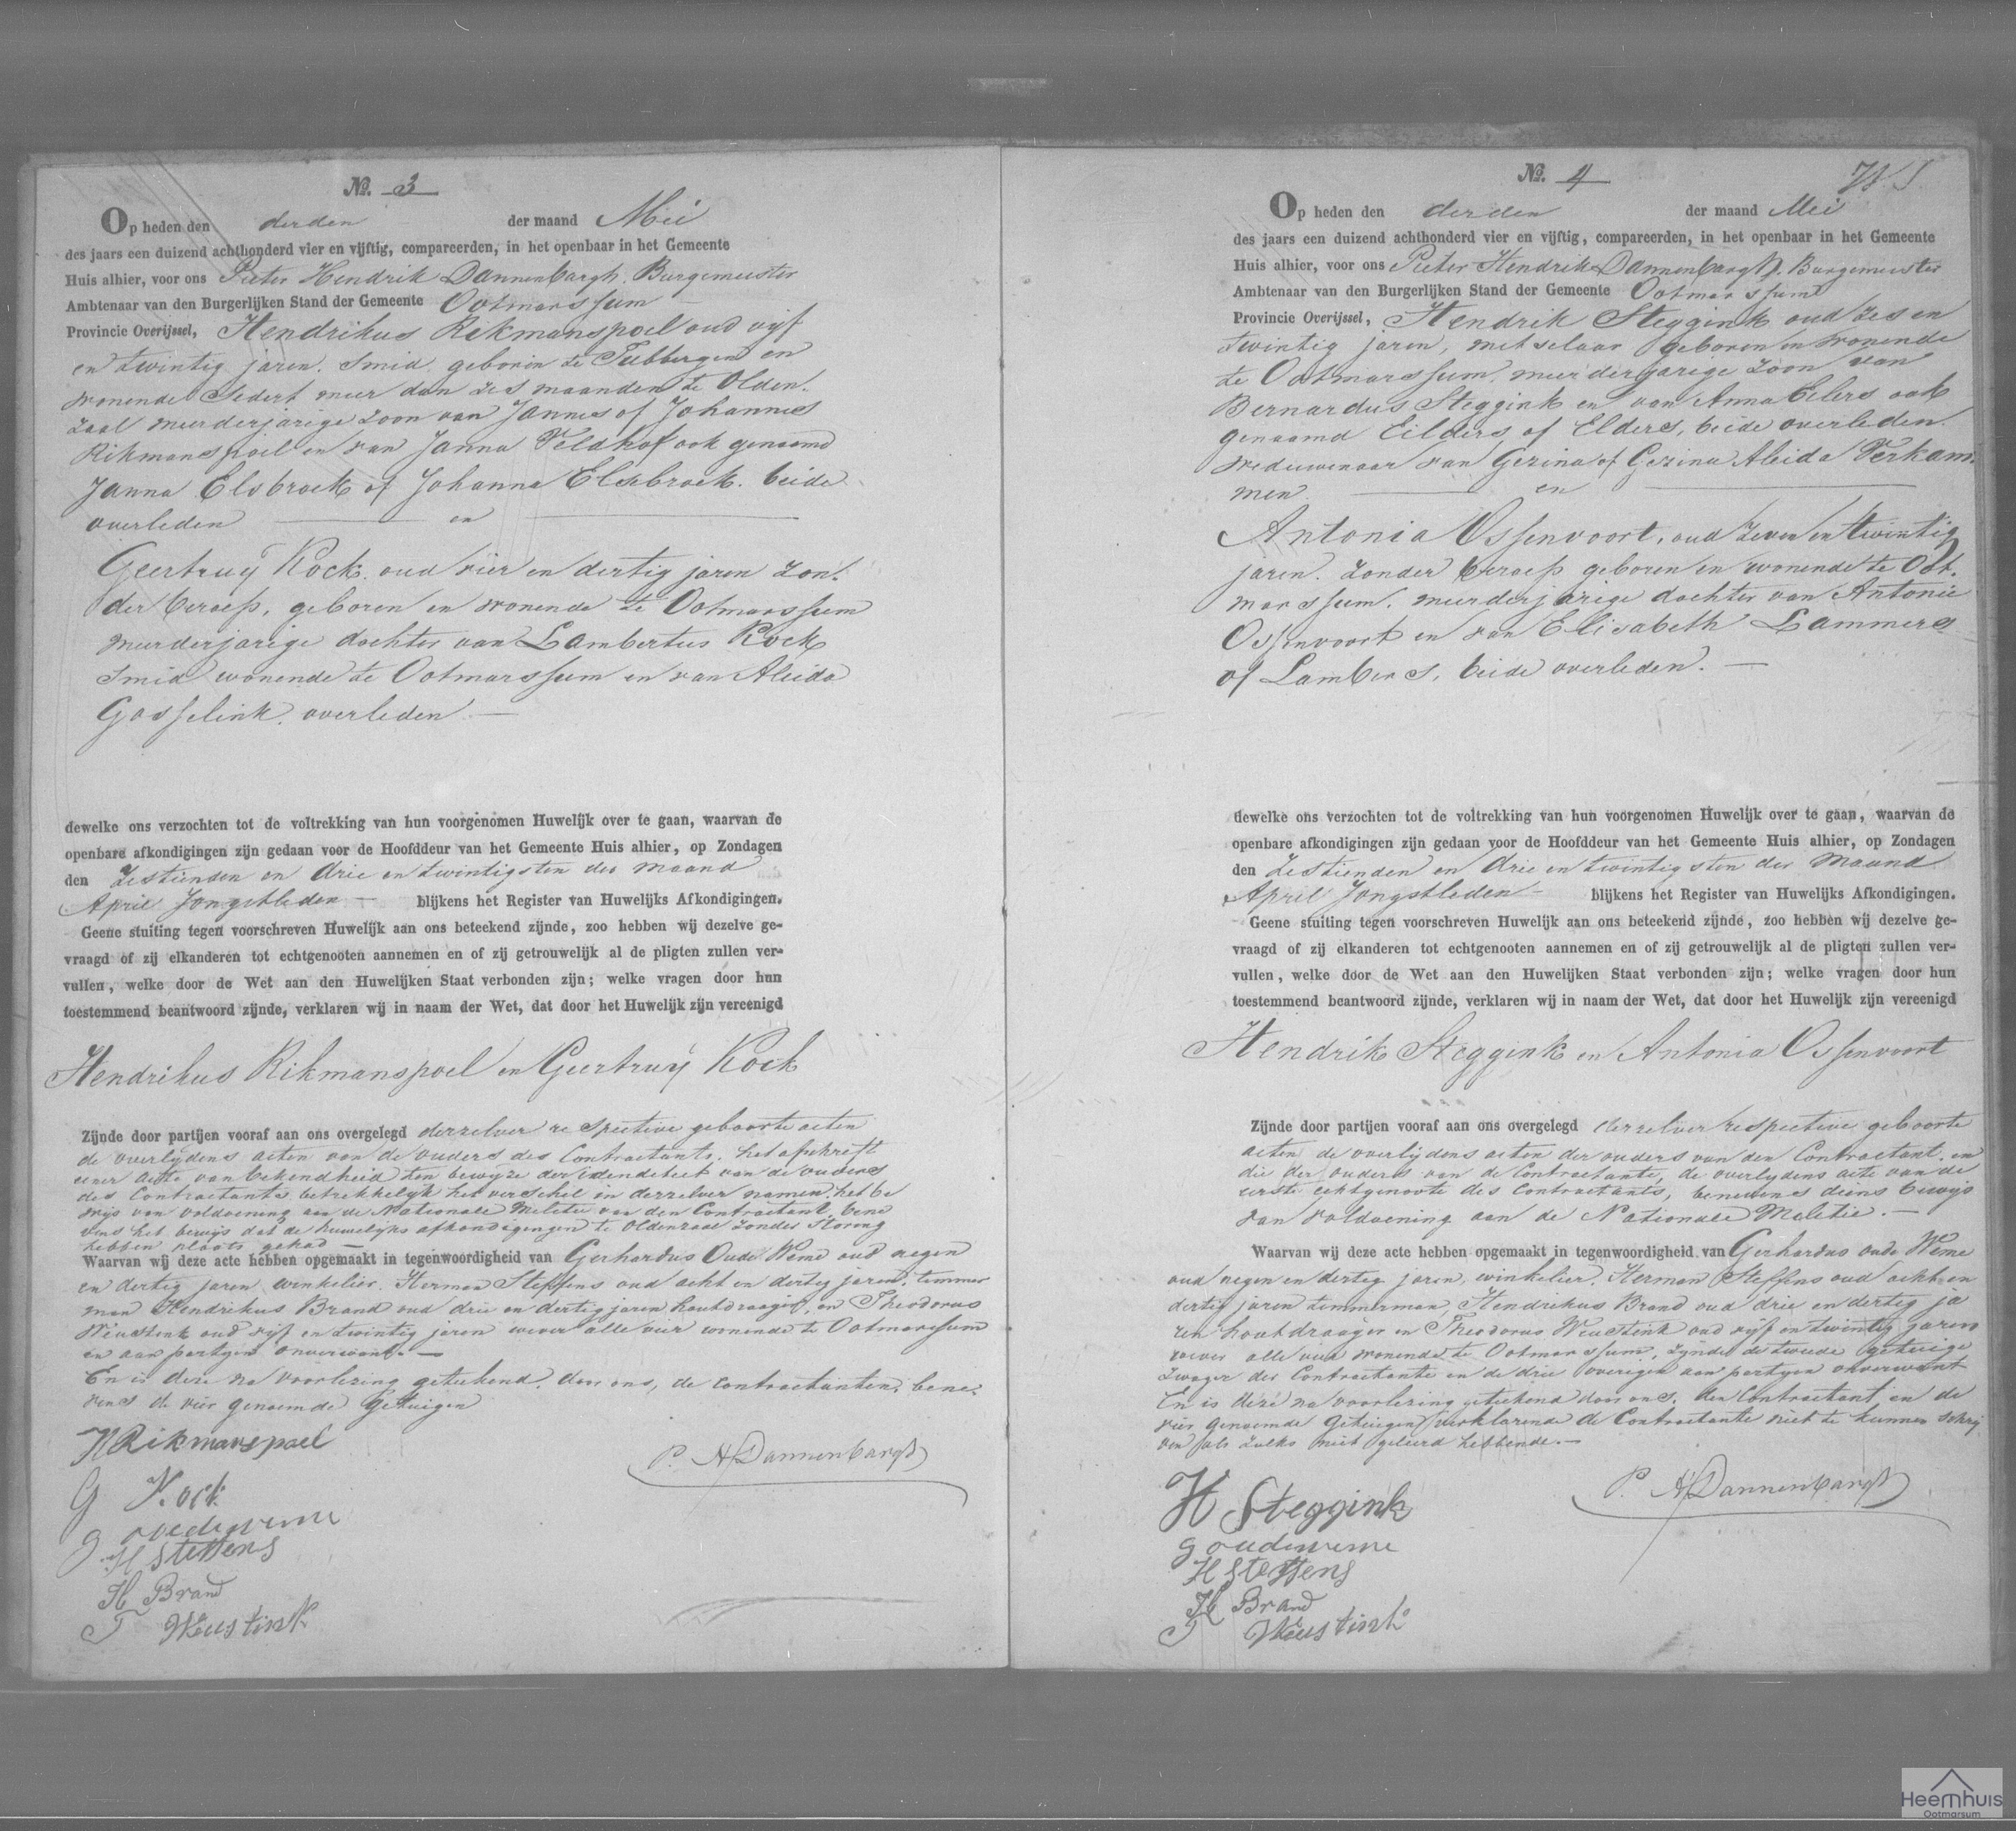 No. 3
Op heden den derden der maand Mei
des jaars een duizend achthonderd vier en vijftig, compareerden, in het openbaar in het Gemeente
Huis alhier, voor ons Pieter Hendrik Dannenbargh, Burgemeester
Ambtenaar van den Burgerlijken Stand der Gemeente Ootmarssum
Provincie Overijssel, Hendrikus Rikmanspoel oud vijf
en twintig jaren, Smid, geboren te Tubbergen en
wonende sedert meer dan zes maanden te Olden.
zaal meerderjarige zoon van Jannes of Johannes
Rikmanspoel en van Janna Veldhof ook genaamd
Janna Elsbroek of Johanna Elsebroek. beide
overleden en
Geertruij Kock, oud vier en dertig jaren zon.
der beroep, geboren en wonende te Ootmarssum
meerderjarige dochter van Lambertus Kock
Smid wonende te Ootmarssum en van Aleida
Gosselink, overleden —
dewelke ons verzochten tot de voltrekking van hun voorgenomen Huwelijk over te gaan, waarvan de
openbare afkondigingen zijn gedaan voor de Hoofddeur van het Gemeente Huis alhier, op Zondagen
den Zestienden en drie en twintigsten der maand
April Jongstleden — blijkens het Register van Huwelijks Afkondigingen.
Geene stuiting tegen voorschreven Huwelijk aan ons beteekend zijnde, zoo hebben wij dezelve ge-
vraagd of zij elkanderen tot echtgenooten aannemen en of zij getrouwelijk al de pligten zullen ver-
vullen, welke door de Wet aan den Huwelijken Staat verbonden zijn; welke vragen door hun
toestemmend beantwoord zijnde, verklaren wij in naam der Wet, dat door het Huwelijk zijn vereenigd
Hendrikus Rikmanspoel en Geertruij Kock
Zijnde door partijen vooraf aan ons overgelegd derzelver respective geboorte acten
de overlijdens acten van de ouders des Contractants. het afschrift
eener acte van bekendheid ten bewijze der idenditeit van de ouders
des Contractants betrekkelijk het verschil in derzelver namen, het be
wijs van voldoening aan de Nationale Militie van den Contractant, bene
vens het bewijs dat de huwelijks afkondigingen te Oldenzaal zonder storing
hebben plaats gehad —
Waarvan wij deze acte hebben opgemaakt in tegenwoordigheid van Gerhardus Oude Weme oud negen
en dertig jaren winkelier. Herman Steffens oud acht en dertig jaren, timmer
man Hendrikus Brand oud drie en dertig jaren houtdraager, en Theodorus
Weustink oud vijf en twintig jaren wever alle vier wonende te Ootmarssum
en aan partijen onverwant. —
En is deze na voorlezing geteekend, door ons, de contractanten, bene.
vens de vier genoemde Getuigen
H Rikmanspoel
P. H Dannenbargh
G Kock
G oudeweme
H Steffens
H Brand
T Weustink
No. 4
Op heden den derden der maand Mei
des jaars een duizend achthonderd vier en vijftig, compareerden, in het openbaar in het Gemeente
Huis alhier, voor ons Pieter Hendrik Dannenbargh, Burgemeester
Ambtenaar van den Burgerlijken Stand der Gemeente Ootmarssum
Provincie Overijssel, Hendrik Steggink oud zes en
twintig jaren, metselaar geboren en wonende
te Ootmarssum, meerderjarige zoon van
Bernardus Steggink en van Anna Eilers ook
genaamd Eilders of Elders, beide overleden.
weduwenaar van Gezina of Gezina Aleida Verkam.
men en
Antonia Ossenvoort, oud zeven en twintig
jaren. zonder beroep geboren en wonende te Oot.
marssum, meerderjarige dochter van Antonie
Ossenvoort en van Elisabeth Lammers
of Lambers, beide overleden. —
dewelke ons verzochten tot de voltrekking van hun voorgenomen Huwelijk over te gaan, waarvan de
openbare afkondigingen zijn gedaan voor de Hoofddeur van het Gemeente Huis alhier, op Zondagen
den Zestienden en drie en twintigsten der maand
April Jongstleden — blijkens het Register van Huwelijks Afkondigingen.
Geene stuiting tegen voorschreven Huwelijk aan ons beteekend zijnde, zoo hebben wij dezelve ge-
vraagd of zij elkanderen tot echtgenooten aannemen en of zij getrouwelijk al de pligten zullen ver-
vullen, welke door de Wet aan den Huwelijken Staat verbonden zijn; welke vragen door hun
toestemmend beantwoord zijnde, verklaren wij in naam der Wet, dat door het Huwelijk zijn vereenigd
Hendrik Steggink en Antonia Ossenvoort
Zijnde door partijen vooraf aan ons overgelegd derzelver respective geboorte
acten de overlijdens acten der ouders van den Contractant en
die der ouders van de Contractante, de overlydens acte van de
eerste echtgenoote des Contractants, benevens diens bewijs
van voldoening aan de Nationale Militie. —
Waarvan wij deze acte hebben opgemaakt in tegenwoordigheid van Gerhardus oude Weme
oud negen en dertig jaren, winkelier, Herman Steffens oud acht en
dertig jaren timmerman, Hendrikus Brand oud drie en dertig ja
ren houtdraager en Theodorus Weustink oud vijf en twintig jaren
wever alle vier wonende te Ootmarssum, zijnde de tweede getuige
zwager der Contractante en de drie overigen aan partijen onverwant
En is deze na voorlezing geteekend door ons, den Contractant en de
vier genoemde Getuigen, verklarende de Contractante niet te kunnen schrij
ven als zulks niet geleerd hebbende. —
H Steggink
P. H Dannenbargh
G oudeweme
H Steffens
H Brand
T Weustink
Heemhuis
Ootmarsum